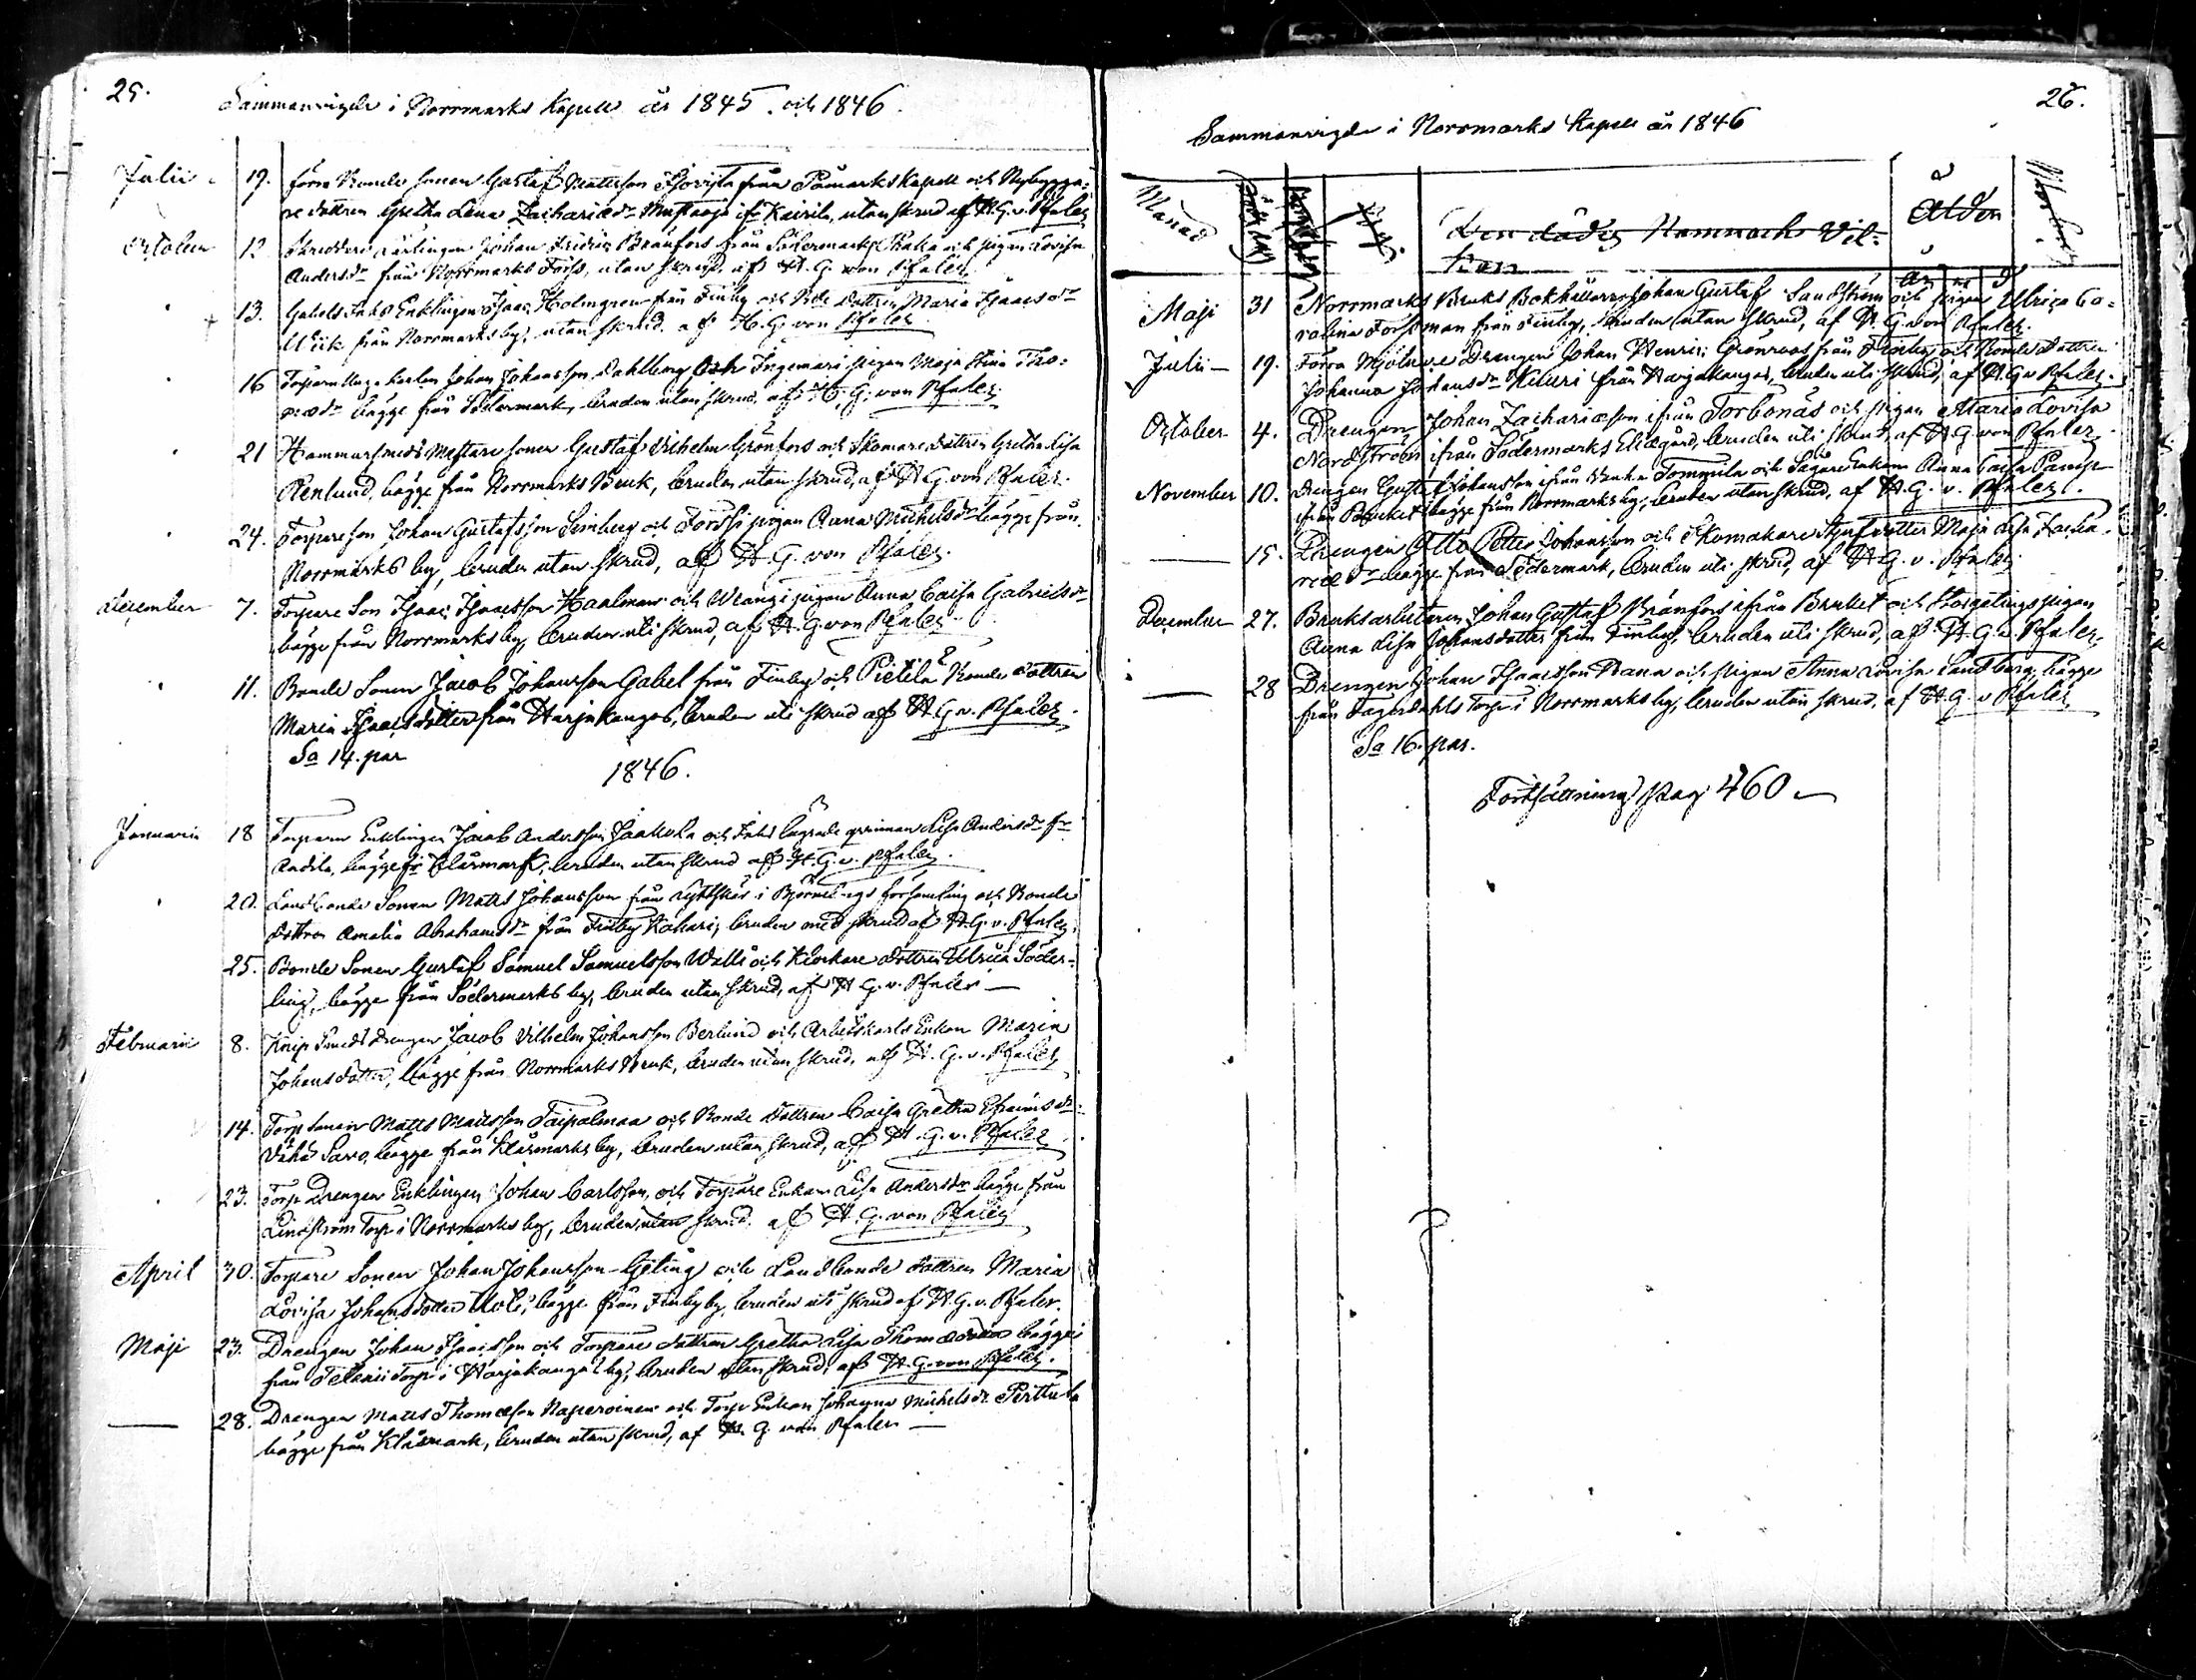 25.
Sammanvigde i Norrmarks Kapell år 1845. och 1846.
Julii 19. förra Bonde sonen Gustaf Mattsson från Påmarks Kapell och Nybygga-
re dottren Gretha Lena Zachariædr ifr Kairila, utan skrud af H.G.v. Pfaler
October 12. Skrädderi Lärlingen Johan Fredric Brånfors från Södermark och pigan Lovisa
Andersdr från Norrmarks Forss, utan skrud, af H. G. von Pfaler
13. Enklingen Isaac Holmgren från Finby och Bde Dottren Maria Isaacsdr
Wiik från Norrmarks by, utan skrud. af H. G. von Pfaler
16 Johan Johansson Dahlberg och Ingemari pigan Maja Stina Tho-
mædr bägge från Södermark, bruden utan skrud, af H. G. von Pfaler
21 Hammarsmeds Mästare sonen Gustaf Vilhelm Grönfors och Skomare dottren Gretha Lisa
Renlund, bägge från Norrmarks Bruk, bruden utan skrud, af H G. von Pfaler.
24. Torpare son Johan Gustafsson Limberg och Forss pigan Anna Michelsdr bägge från
Norrmarks by, bruden utan skrud, af H. G. von Pfaler.
December 7. Torpare Son Isaac Isaacsson Haalman och Wrangi pigan Anna Caisa Gabrielsdr
bägge från Norrmarks by, bruden uti skrud, af H. G. von Pfaler
11. Bonde Sonen Jacob Johansson Gabel från Finby och Pietilä Bonde dottren
Maria Isaacsdotter från Harjakangas, bruden uti skrud af H G v. Pfaler
Sa 14. par
1846.
Januarii 18 Torpare Enklingen Jacob Andersson Jaakola och qvinnan Lisa Andersdr fr
bägge fr Klåsmark, bruden utan skrud af H. G. v. Pfaler.
20. Landbonde Sonen Matts Johansson från i Björneborgs församling och Bonde
dottren Amalia Abrahamsdr från Finby Kahari, bruden med skrud af H. G. v. Pfaler.
25. Bonde Sonen Gustaf Samuel Samuelsson Walli och Klockare dottren Ulrica Söder-
ling, bägge från Södermarks by, bruden utan skrud, af H G. v. Pfaler —
Februarii 8. Knip Smeds Drengen Jacob Vilhelm Johansson Berlund och Arbetskarls Enkan Maria
Johansdotter, bägge från Norrmarks Bruk, bruden utan skrud, af H. G. v. Pfaler
14. Torp sonen Matts Mattsson Taipalmaa och Bonde dottren Caisa Gretha Efraimsdr
Vähä Savo, bägge från Klåsmarks by, bruden utan skrud, af H. G. v. Pfaler
23. Torp Drengen Enklingen Johan Carlsson, och Torpare Enkan Lisa Andersdr bägge från
Lindström Torp i Norrmarks by, bruden utan skrud. af H. G. von Pfaler
April 30. Torpare Sonen Johan Johansson Gjeting och Landbonde dottren Maria
Lovisa Johansdotter Uoti, bägge från Finby by, bruden uti skrud af H. G. v. Pfaler.
Maji 23. Drengen Johan Isaacsson och Torpare dottren Gretha Lisa Thomædotter bägge
från Torp i Harjakangas by, bruden utan skrud, af H. G. von Pfaler.
— 28. Drengen Matts Thomæson Naperoinen och Torp Enkan Johanna Michelsdr Perttula
bägge från Klåsmark, bruden utan skrud, af H. G. von Pfaler —
26.
Sammanvigde i Norrmarks Kapell år 1846
Månad
Den dödes Namn och Vil-
kor
Ålder
år m d
Maji 31 Norrmarks Bruks Bokhållaren Johan Gustaf Sandström och pigan Ulrica Ca-
rolina Forssman från Finby, bruden utan skrud, af H. G. von Pfaler.
Julii — 19. Förra Mjölnare Drengen Johan Henric Grönroos från Finby och Bonde Dottren
Johanna Johansdr Kiluri från Harjakangas, bruden uti skrud, af H. G v Pfaler.
October 4. Drengen Johan Zachariæson ifrån Torbonäs och pigan Maria Lovisa
Nordström ifrån Södermarks Ellegård, bruden uti skrud, af H. G. von Pfaler
November 10. Drengen Gustaf Johansson ifrån Tommila och Sågare Enkan Anna Caisa
ifrån Bruket bägge från Norrmarks by, bruden utan skrud, af H. G. v. Pfaler.
— 15. Drengen Otto Petter Johansson och Skomakare Styfdotter Maja Lisa Zacha-
riædr bägge från Södermark, bruden uti skrud, af H G. v. Pfaler
December 27. Bruksarbetaren Johan Gustaf Brånfors ifrån Bruket och pigan
Anna Lisa Johansdotter från Finby, bruden uti skrud, af H. G. v. Pfaler,
— 28 Drengen Johan Isaacsson Rana och pigan Anna Lovisa Sandberg, bägge
från Fagerdahls Torp i Norrmarks by, bruden utan skrud, af H. G. v Pfaler
Sa 16. par.
Fortsättning Pag 460 —